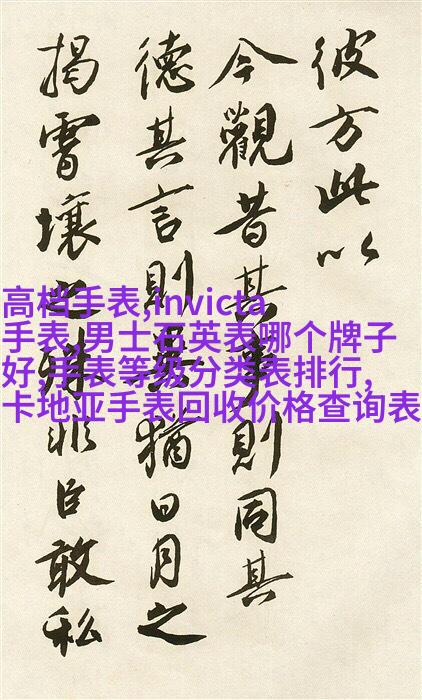 彼方此以
今觀昔其事則同其
德其言則猶日月之
揭霄壤之殊非臣敢私
高档手表,invicta
手表,男士石英表哪个牌子
好,手表等级分类表排行,
卡地亚手表回收价格查询表